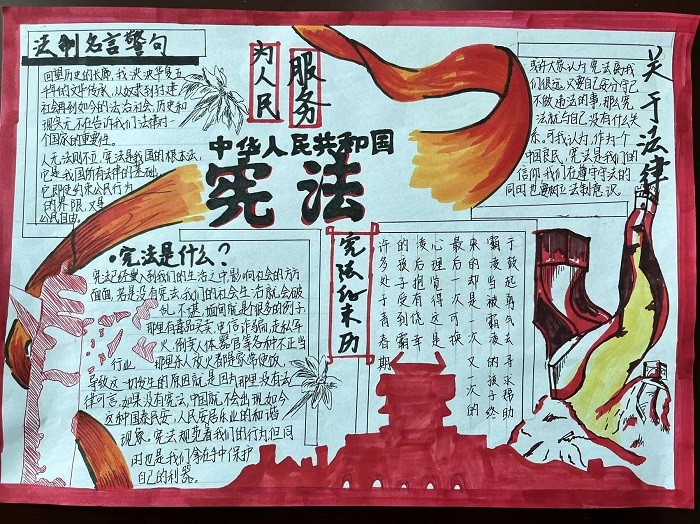 法制名言警句
回望历史的长廊,我泱泱华夏五
千年的文华传承,从奴隶到封建
社会再到如今的法治社会,历史和
现实无不在告诉我们法律对一
个国家的重要性。
人无法则不立,宪法是我国的根本法,
它是我国所有法律的基础,
它即是约束公民行为
的界限,又是
公民自由。
为人民
服务
中华人民共和国
宪法
或许大家认为宪法离我
们很远,只要自己安分守己
不做违法的事,那么宪
法就与自己没有什么关
系。可我认为,作为一个
中国良民,宪法是我们的
信仰,我们在遵守守夫的
同时也要树立法制意识。
关于法律
宪法是什么?
宪法已经融入到我们的生活之中,影响社会的方方
面面,若是没有宪法,我们的社会生活就会破
乱不堪。缅甸就是个很多的例子,
那里有毒品买卖,电信诈骗,走私军
火,倒卖人体器官等各种不正当
行业,那里杀人放火都是家常便饭,
导致这一切发生的原因就是因为那里没有法
律可言,如果没有宪法,中国就不会出现如今
这种国泰民安,人民安居乐业的和谐
现象。宪法规范着我们的行为但同
时也是我们拿在手中保护
自己的利器。
宪法的来历
于鼓起勇气去寻求帮助
霸凌当被霸凌的孩子终
来的却是一次又一次的
最后一次可换
心理觉得这是
凌后抱有侥幸
的孩子受到
许多处于青春期